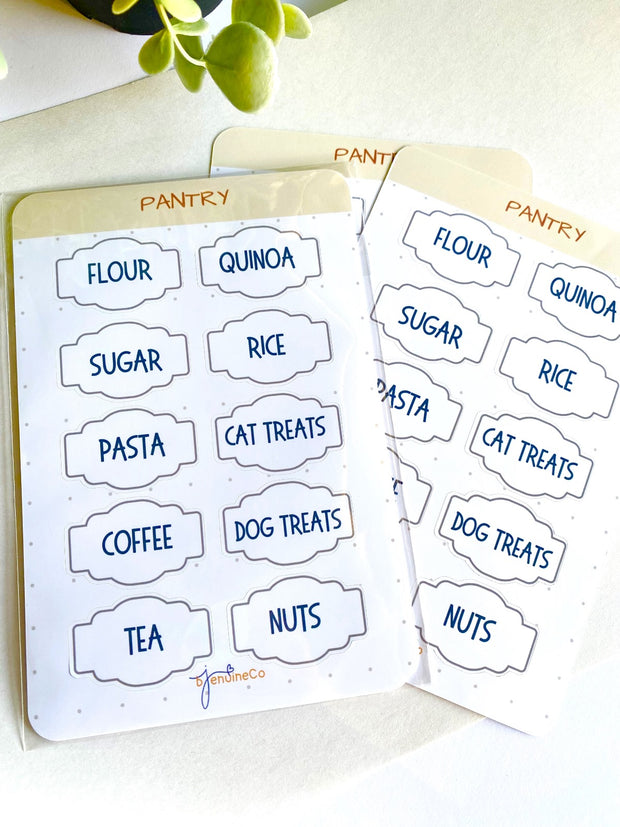 PANTRY
FLOUR QUINOA
SUGAR RICE
PASTA CAT TREATS
COFFEE DOG TREATS
TEA NUTS
bjenuineCo
PANT
PANTRY
FLOUR QUINOA
SUGAR RICE
PASTA CAT TREATS
DOG TREATS
NUTS